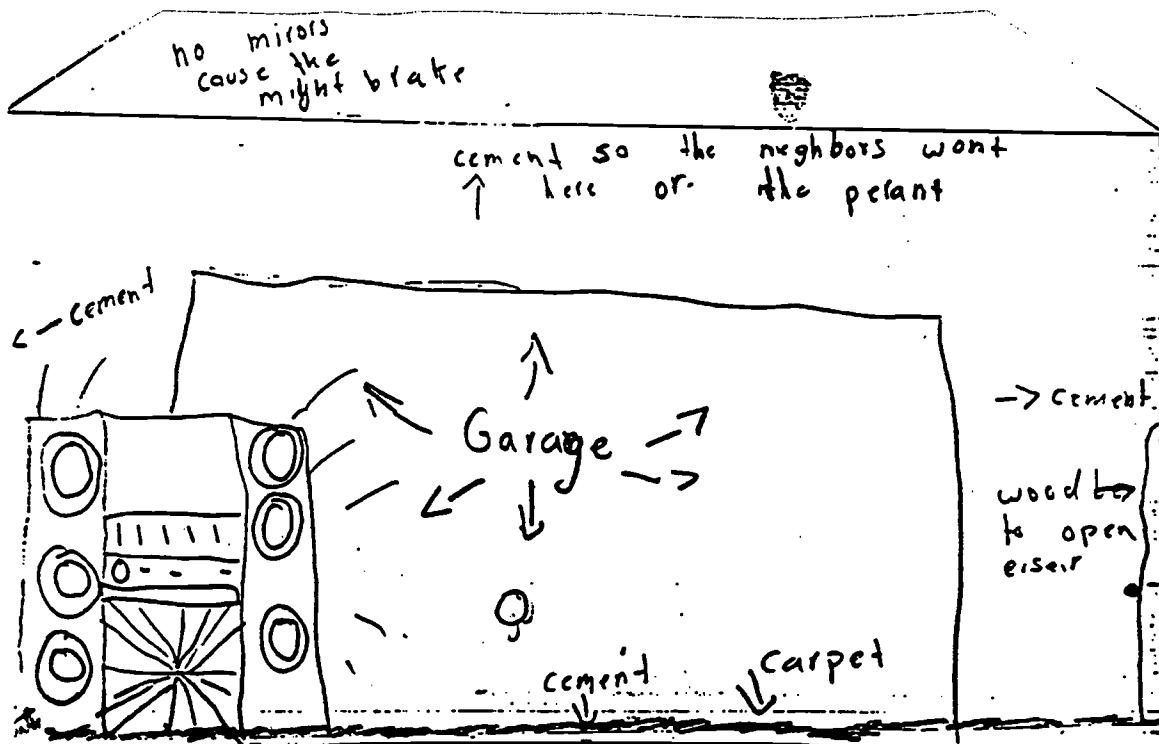 no mirors
cause the
might brake
cement so the neghbors wont
here or the perant
cement
Garage
cement
wood
to open
eiseir
cement
carpet